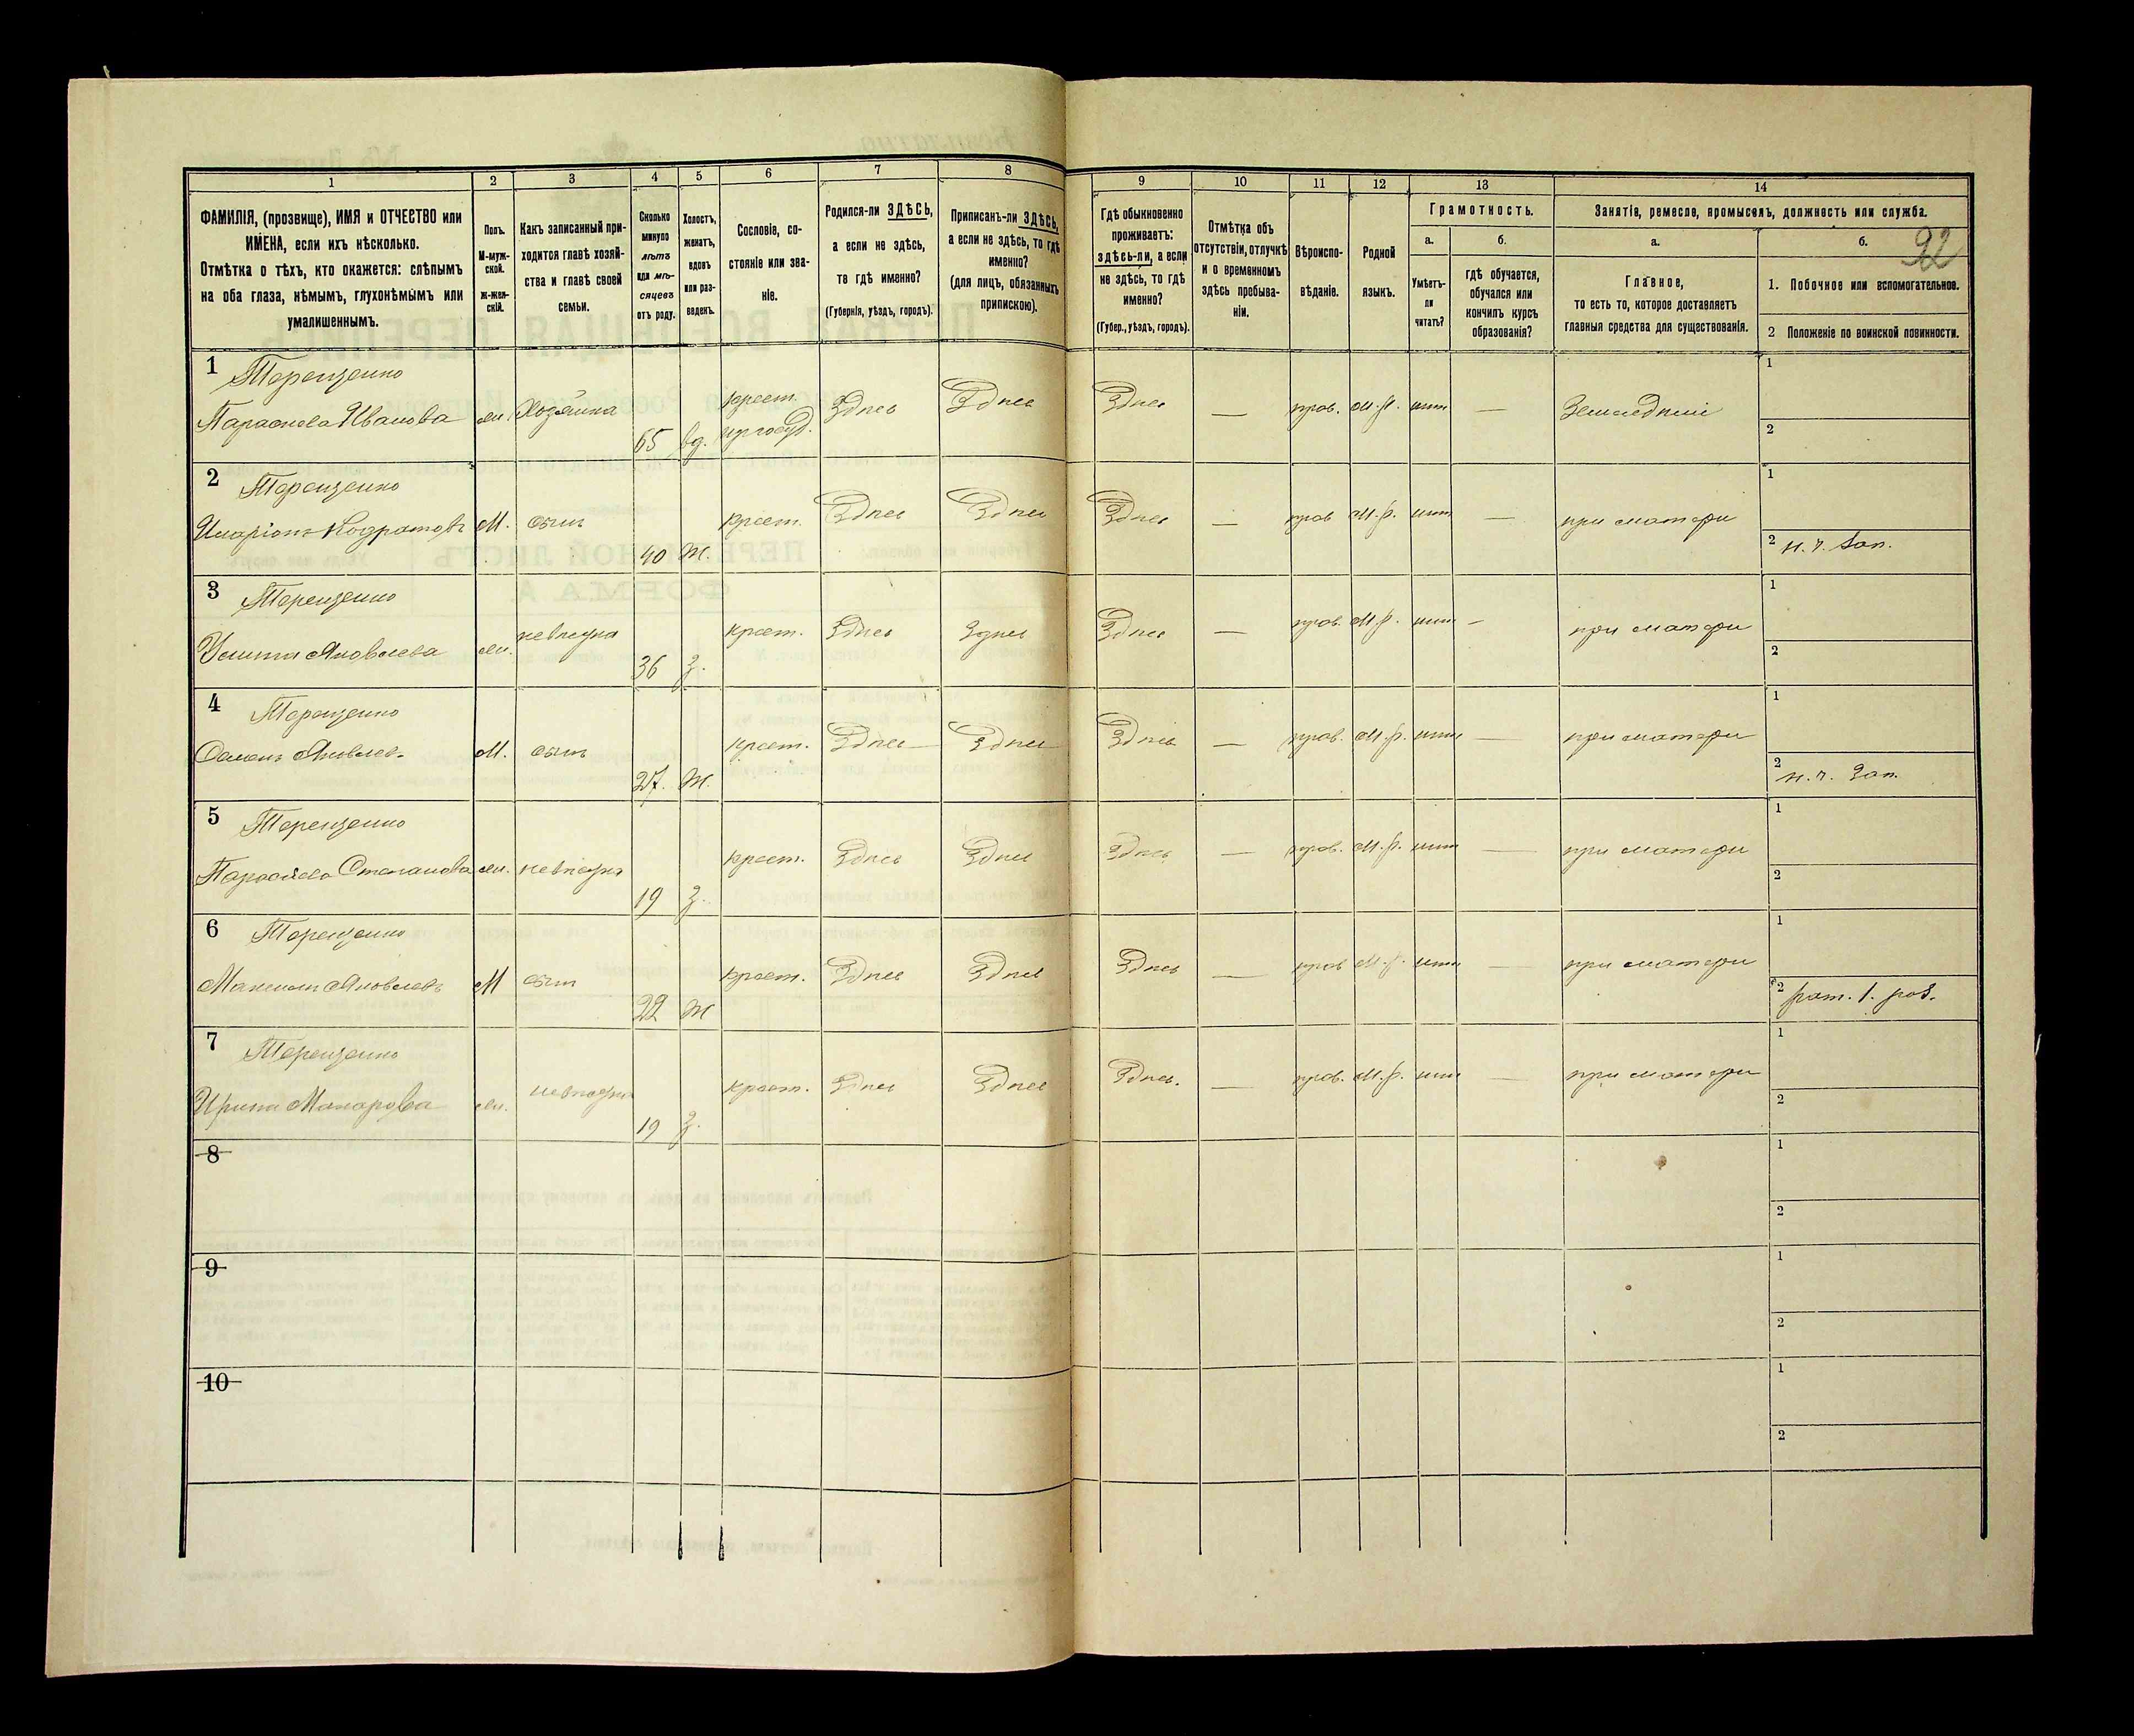 1 2 3 4 5 6 7 8 9 10 11 12 13 14
ФАМИЛІЯ, (прозвище), ИМЯ и ОТЧЕСТВО или
ИМЕНА, если ихъ нѣсколько.
Отмѣтка о тѣхъ, кто окажется: слѣпымъ
на оба глаза, нѣмымъ, глухонѣмымъ или
умалишеннымъ.
Полъ.
М-муж-
ской.
ж-жен-
скій.
Какъ записанный при-
ходится главѣ хозяй-
ства и главѣ своей
семьи.
Сколько
минуло
лѣтъ
или мѣ-
сяцевъ
отъ роду.
Холостъ,
женатъ,
вдовъ
или раз-
веденъ.
Сословіе, со-
стояніе или зва-
ніе.
Родился-ли ЗДѢСЬ,
а если не здѣсь,
то гдѣ именно?
(Губернія, уѣздъ, городъ).
Приписанъ-ли ЗДѢСЬ,
а если не здѣсь, то гдѣ
именно?
(для лицъ, обязанныхъ
припискою).
Гдѣ обыкновенно
проживаетъ:
здѣсь-ли, а если
не здѣсь, то гдѣ
именно?
(Губер., уѣздъ, городъ).
Отмѣтка объ
отсутствіи, отлучкѣ
и о временномъ
здѣсь пребыва-
ніи.
Вѣроиспо-
вѣданіе.
Родной
языкъ.
Грамотность.
а.
Умѣетъ-
ли
читать?
б.
гдѣ обучается,
обучался или
кончилъ курсъ
образованія?
Занятіе, ремесло, промыселъ, должность или служба.
а.
Главное,
то есть то, которое доставляетъ
главныя средства для существованія.
б.
92
1. Побочное или вспомогательное.
2 Положеніе по воинской повинности.
1 Терещенко
Параскева Иванова жн. Хозяйка 65 вд. крест. Здѣсь Здѣсь Здѣсь — прав. м.р. нит — Земледѣліе 1
2
2 Терещенко
Иларіонъ Кодратовъ М. сынъ 40 Ж. крест. Здѣсь Здѣсь Здѣсь — прав м.р. нит — при матери 1
2 н. ч. Зап.
3 Терещенко
Улита Яковлева жн. невѣстка 36 з. крест. Здѣсь Здѣсь Здѣсь — прав. м.р. нит — при матери 1
2
4 Терещенко
Яковлев. М. сынъ 27. Ж. крест. Здѣсь Здѣсь Здѣсь — прав. м.р. нит — при матери 1
2 н. ч. Зап.
5 Терещенко
Параскева Степанова жн. невѣстка 19 з. крест. Здѣсь Здѣсь Здѣсь — прав. м.р. нит — при матери 1
2
6 Терещенко
Максимъ Яковлевъ М сынъ 22 Ж крест. Здѣсь Здѣсь Здѣсь — прав м.р. нит — при матери 1
2 рат. 1. раз.
7 Терещенко
Ирина Макарова жн. невѣстка 19 з. крест. Здѣсь Здѣсь Здѣсь. — прав. м.р. нит — при матери 1
2
8 1
2
9 1
2
10 1
2